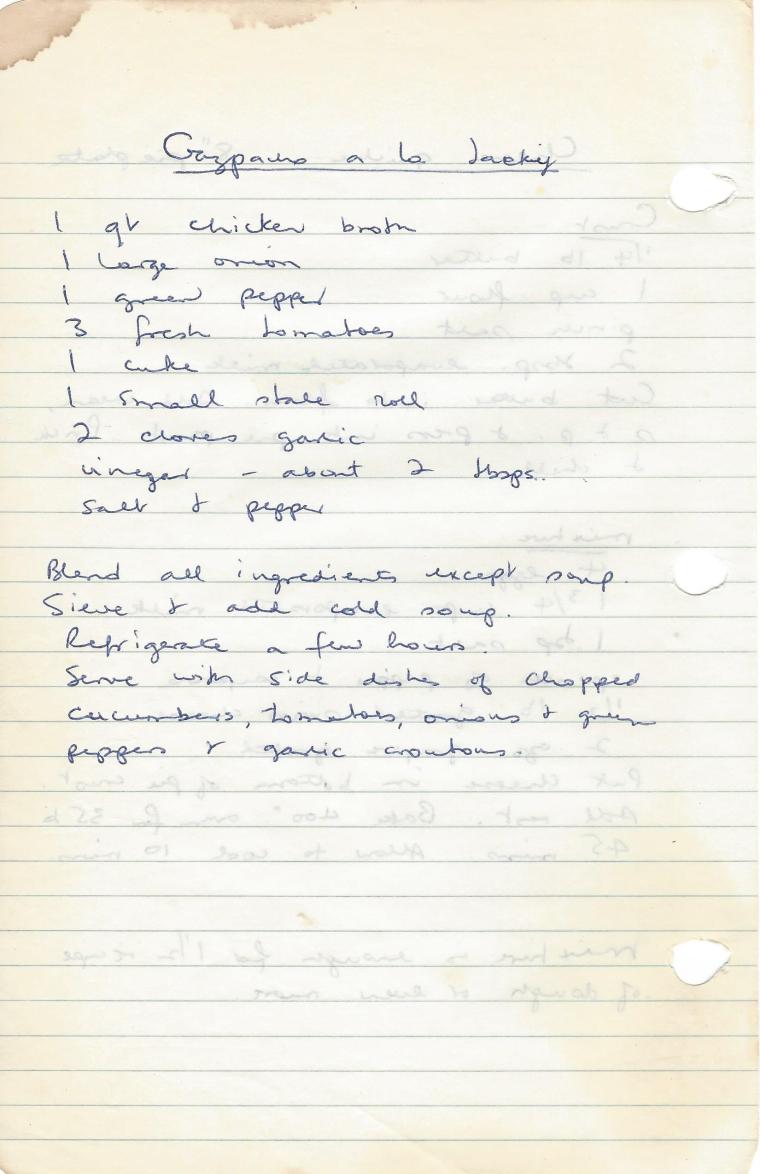 Gazpacho a la Jacky
1 qt chicken broth
1 large onion
1 green pepper
3 fresh tomatoes
1 cuke
1 small stale roll
2 cloves garlic
vinegar - about 2 tbsps.
salt & pepper
Blend all ingredients except soup.
Sieve & add cold soup.
Refrigerate a few hours.
Serve with side dishes of chopped
cucumbers, tomatoes, onions & green
peppers & garlic croutons.